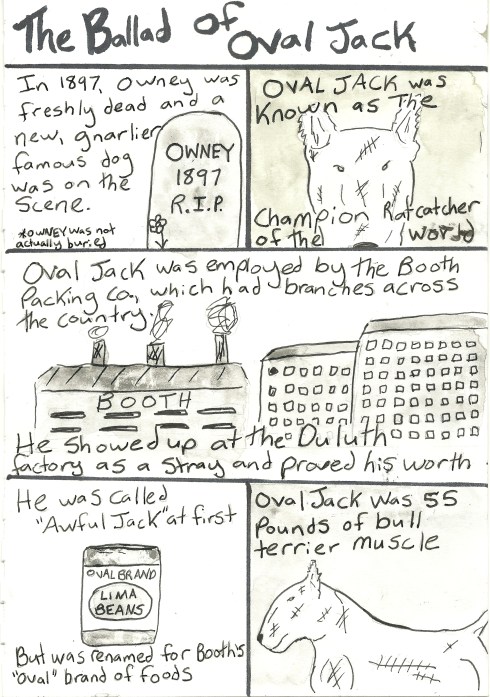 The Ballad of Oval Jack
In 1897, Owney was
freshly dead and a
new, gnarlier
famous dog
was on the
scene.
*Owney was not
actually buried
OWNEY
1897
R.I.P.
OVAL JACK was
Known as The
Champion Ratcatcher
of the World
Oval Jack was employed by the Booth
Packing Co., which had branches across
the country.
BOOTH
He showed up at the Duluth
factory as a stray and proved his worth
He was called
"Awful Jack" at first
OVAL BRAND
LIMA
BEANS
But was renamed for Booth's
"Oval" brand of foods
Oval Jack was 55
Pounds of bull
terrier muscle